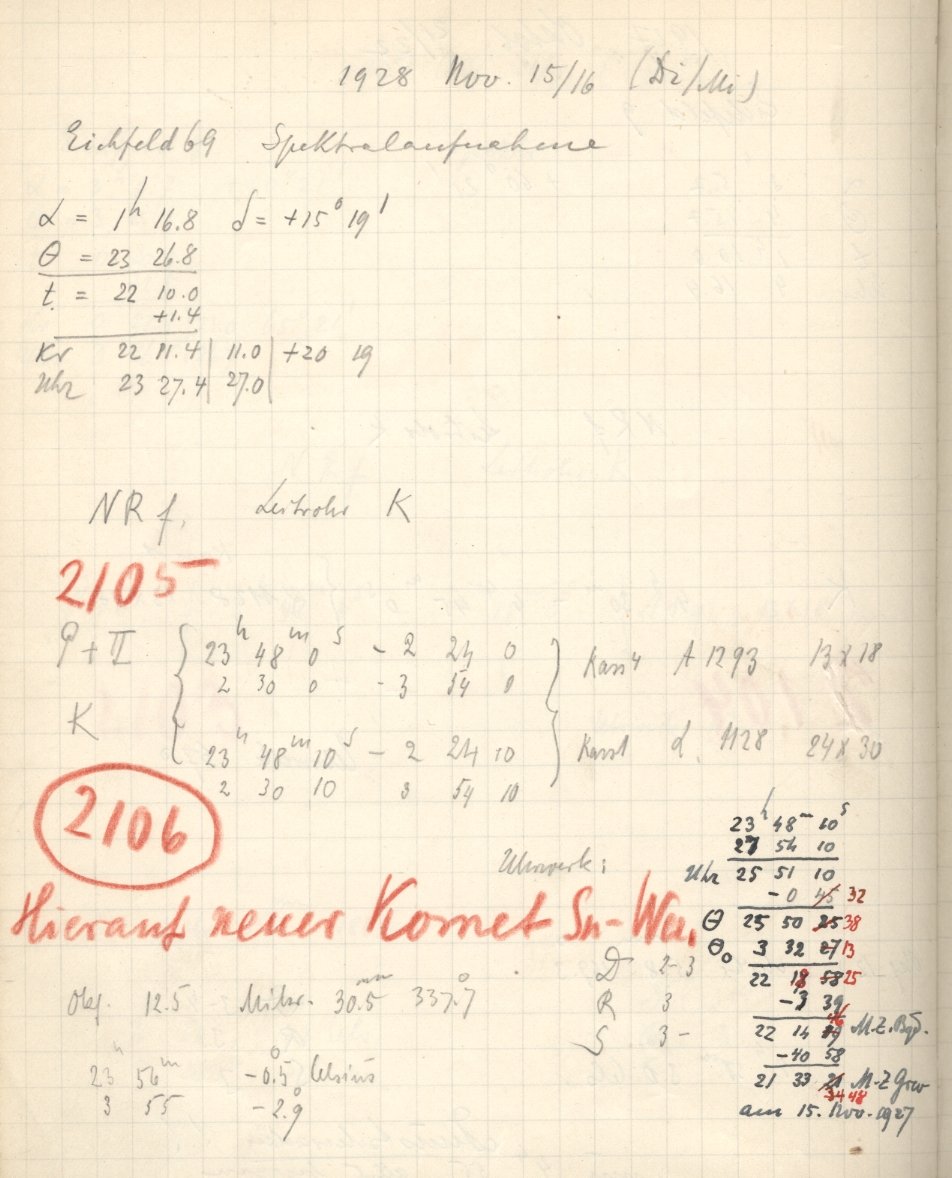 1928 Nov. 15/16 (Di/Mi)
Eichfeld 69 Spektralaufnahme
α = 1h 16.8 δ = +15° 19'
θ = 23 26.8
t = 22 10.0
+1.4
Kr 22 11.4 | 11.0 | +20 19
Uhr 23 27.4 | 27.0 |
NR f. Leitrohr K
2105
P + II { 23h 48m 0s - 2 24 0 } Kass 4 A 1293 13 x 18
2 30 0 - 3 54 0
K 23h 48m 10s - 2 24 10 Kass 1 d. 1128 24 x 30
2 30 10 3 54 10
2106
Uhrwerk:
Hierauf neuer Komet Sn-Wa.
D 2-3
R 3
S 3-
Obj. 12.5 Mikr. 30.5mm 337.°7
23h 56m -0.°5 Celsius
3 55 -2.°9
23h 48m 10s
27 54 10
Uhr 25 51 10
- 0 45 32
θ 25 50 25 38
θ₀ 3 32 27 13
22 18 58 25
-3 39
22 14 46 M.Z. Bgd.
-40 58
21 33 21 M-Z Grw
34 48
am 15. Nov. 1927